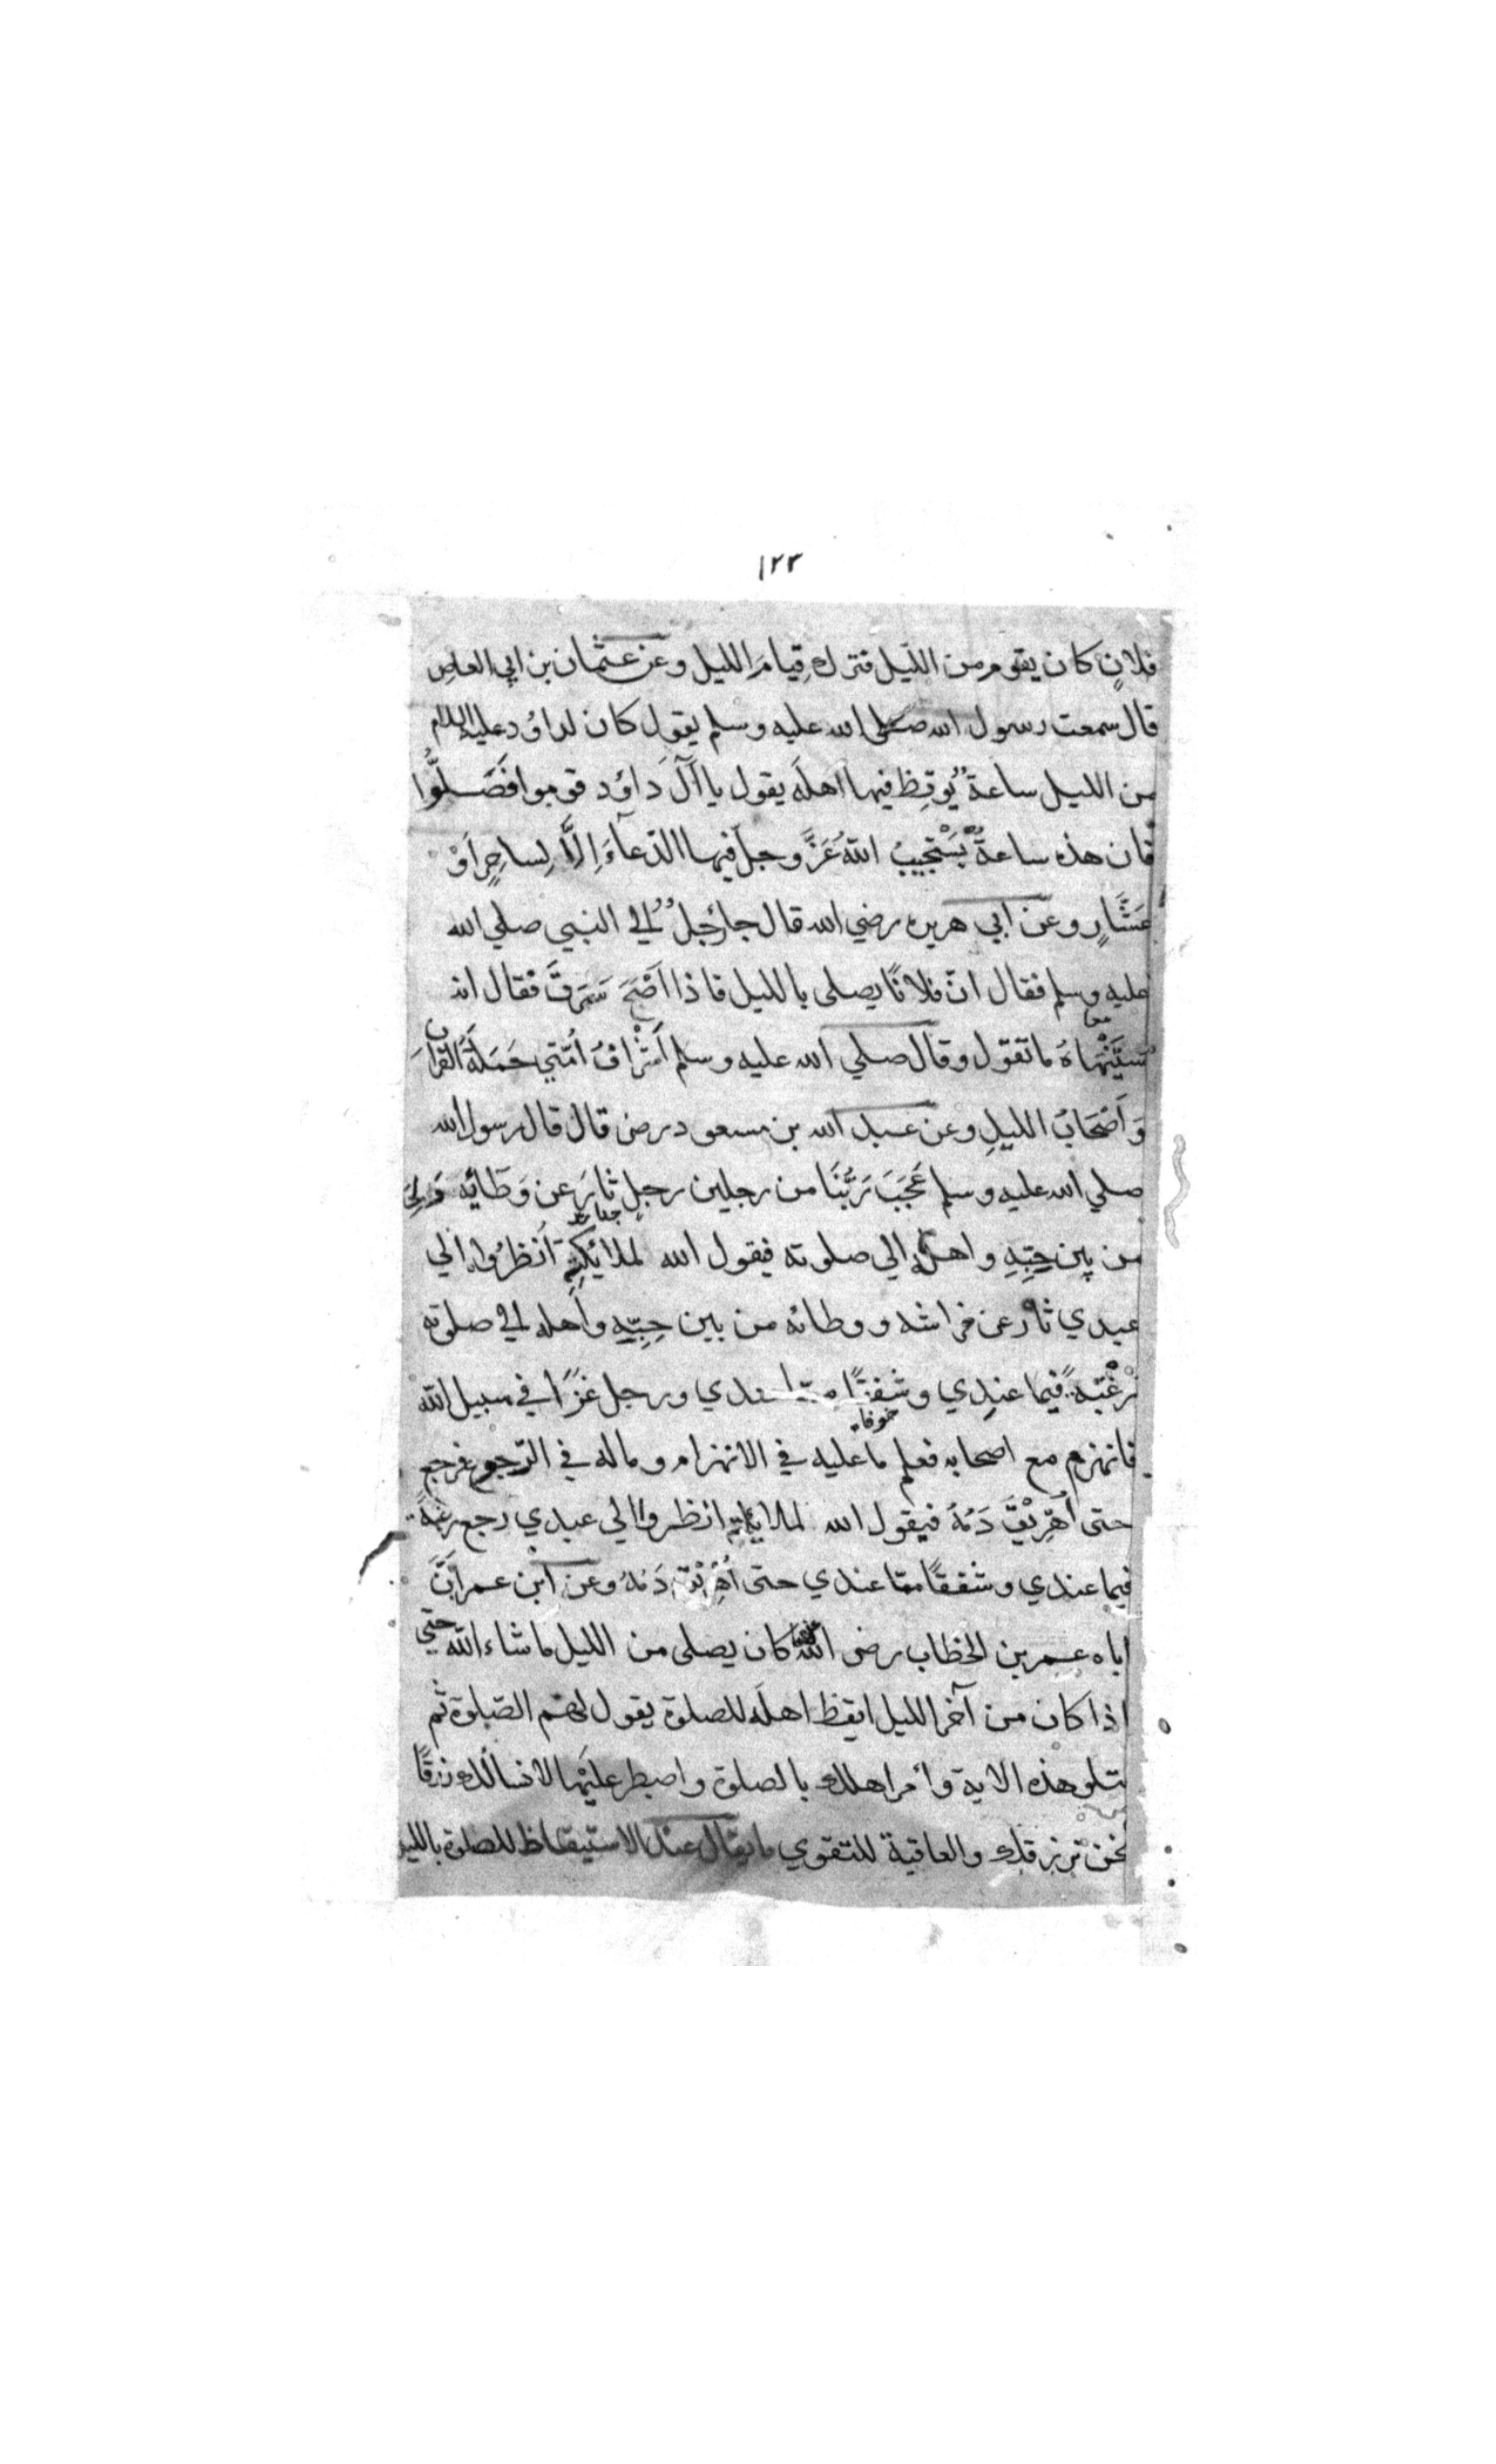 ١٢٣
فلانٍ كان يقوم من اللّيل فترك قِيامَ الليل وعن عثمان بن ابي العاصِ
قال سمعت رسول الله صلى الله عليه وسلم يقول كان لداوُد عليه السلام
من الليل ساعةٌ يُوقِظ فيها اهلَه يقول يا آلَ دَاوُد قوموا فَصَلُّوا
فان هذه ساعةٌ يَسْتَجِيبُ اللهُ عَزَّ وجلّ فيها الدّعآءَ اِلَّا لِساحِرٍ اَوْ
عَشَّارٍ وعن ابي هريره رضي الله قال جآ رَجُلٌ الي النبي صلي الله
عليه وسلم فقال انّ فلانًا يصلى بالليل فاذا اَصْبَحَ سَرَقَ فقال انه
سَيَنْهَاهُ ما تقول وقال صلي الله عليه وسلم اَشْرَافُ اُمَّتِي حَمَلَةُ القرآن
وَاَصْحَابُ الليلِ وعن عبد الله بن مسعود رضى قال قال رسول الله
صلي الله عليه وسلم عَجَبَ رَبُّنَا من رجلين رجلٍ ثارَ عن وَطَائِه
من بين حِبِّهِ واهلِه الي صلوته فيقول الله لملائِكتِه اُنظُرُوا الي
عبدي ثار عن فراشه ووطائه من بين حِبِّهِ واَهله الي صلوته
رَغْبَةً فيما عندِي وشفقًا ممّا عندي ورجل غَزَا في سبيل الله
خوفا
فانهزم مع اصحابه فعلم ما عليه في الانهزام وماله في الرّجوع فرجع
حتى اُهْرِيْقَ دَمُهُ فيقول الله لملائكته انظروا الي عبدي رجع رغبةً
فيما عندي وشفقًا ممّا عندي حتى اُهْرِيْقَ دَمُهُ وعن ابن عمر اَنَّ
اباه عمر بن الخطاب رضى الله كان يصلى من الليل ما شاء الله حتي
اذا كان من آخر الليل ايقظ اهلَه للصلوة يقول لهم الصّلوة ثم
يتلو هذه الاية وأمر اهلك بالصلوة واصطبر عليْها لا نسالك رزقًا
نحن نرزقك والعاقبة للتقوي ما يقال عند الاستيقاظ للصلوة بالليل